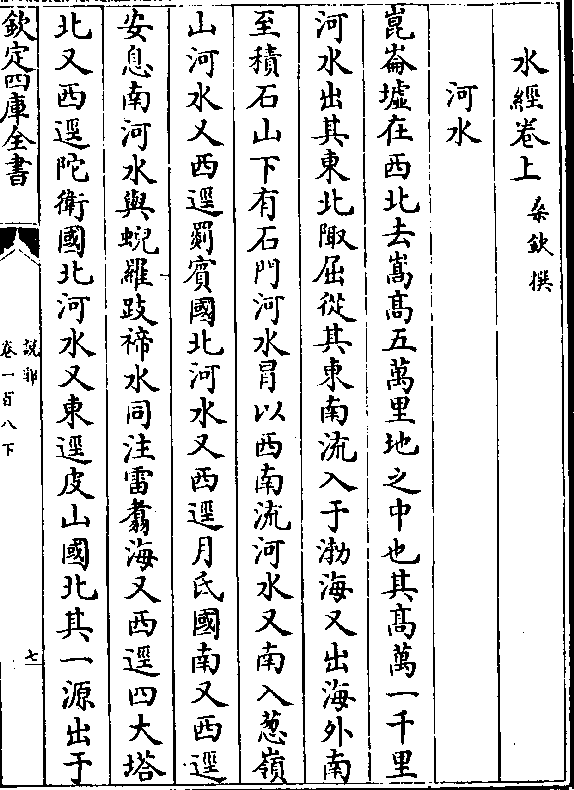 水經卷上 桑欽撰
河水
崑崙墟在西北去嵩髙五萬里地之中也其髙萬一千里
河水出其東北陬屈從其東南流入于渤海又出海外南
至積石山下有石門河水冐以西南流河水又南入葱嶺
山河水又西逕罽賓國北河水又西逕月氏國南又西逕
安息南河水與蜺羅跂褅水同注雷翥海又西逕四大塔
北又西逕陀衛國北河水又東逕皮山國北其一源出于
欽定四庫全書
說郛
卷一百八下
七